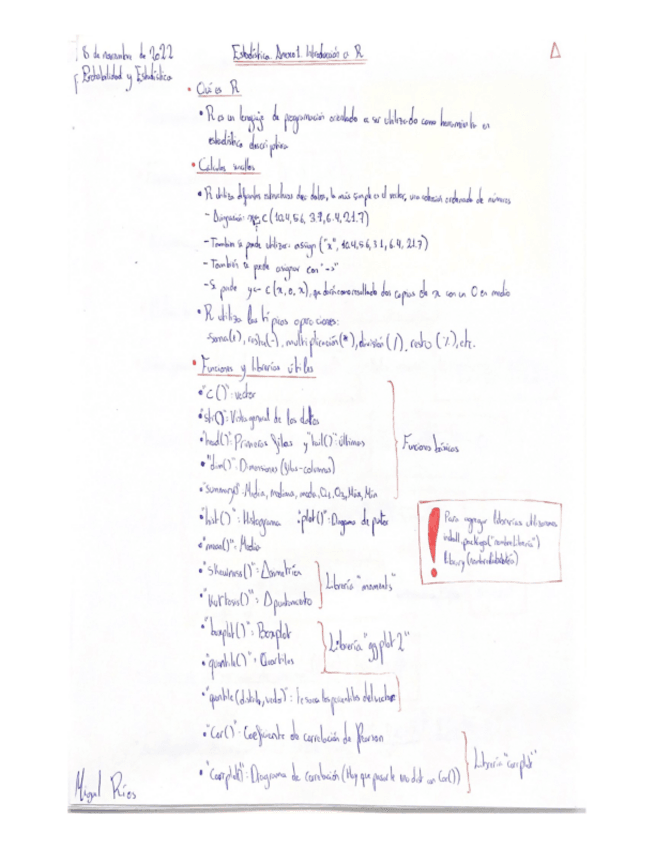 8 de noviembre de 2022
Estadística. Anexo 1. Introducción a R
Probabilidad y Estadística
• Qué es R
• R es un lenguaje de programación orientado a ser utilizado como herramienta en
estadística descriptiva
• Cálculos sencillos
• R utiliza diferentes estructuras de datos, la más simple es el vector, una colección ordenada de números
- Asignación: c(10.4, 5.6, 3.1, 6.4, 21.7)
- También se puede utilizar: assign("x", 10.4, 5.6, 3.1, 6.4, 21.7)
- También se puede asignar con "->"
- Si pude y <- c(x, 0, x), que daría como resultado dos copias de x con un 0 en medio
• R utiliza los típicos operaciones:
suma(+), resta(-), multiplicación(*), división(/), resto(%), etc.
• Funciones y librerías útiles
• "c()": vector
• "str()": Vista general de los datos
• "head()": Primeras filas y "tail()": últimas
Funciones básicas
• "dim()": Dimensiones (filas-columnas)
• "summary": Media, mediana, moda, Q1, Q3, Máx, Min
• "hist()": Histograma • "plot()": Diagrama de puntos
• "mean()": Media
! Para agregar librerías utilizaremos
install.packages("nombre librería")
library(nombre de librería)
• "skewness()": Asimetría
• "kurtosis()": Apuntamiento
Librería "moments"
• "boxplot()": Boxplot
• "quantile()": Cuartiles
Librería "ggplot2"
• "quantile(datos, vector)": Te saca los percentiles del vector
• "cor()": Coeficiente de correlación de Pearson
• "corrplot()": Diagrama de correlación (Hay que pasarle un data con cor())
Librería "corrplot"
Miguel Ríos